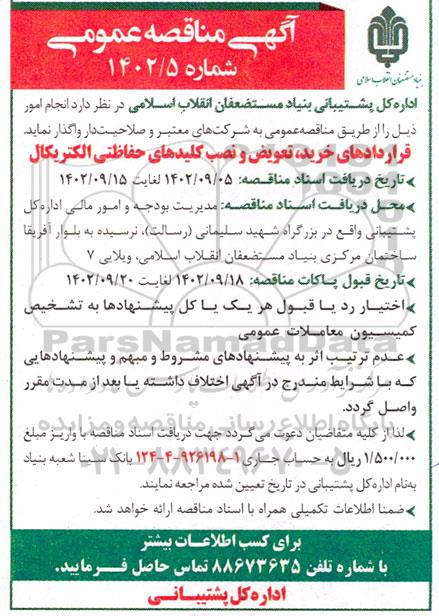 آگهی مناقصه عمومی
شماره ۱۴۰۲/۵
بنیاد مستضعفان انقلاب اسلامی
اداره‌کل پشتیبانی بنیاد مستضعفان انقلاب اسلامی در نظر دارد انجام امور
ذیل را از طریق مناقصه‌عمومی به شرکت‌های معتبر و صلاحیت‌دار واگذار نماید.
قراردادهای خرید، تعویض و نصب کلیدهای حفاظتی الکتریکال
تاریخ دریافت اسناد مناقصه: ۱۴۰۲/۰۹/۰۵ لغایت ۱۴۰۲/۰۹/۱۵
محل دریافت اسناد مناقصه: مدیریت بودجه و امور مالی اداره‌کل
پشتیبانی واقع در بزرگراه شهید سلیمانی (رسالت)، نرسیده به بلوار آفریقا
ساختمان مرکزی بنیاد مستضعفان انقلاب اسلامی، ویلایی ۷
تاریخ قبول پاکات مناقصه: ۱۴۰۲/۰۹/۱۸ لغایت ۱۴۰۲/۰۹/۲۰
اختیار رد یا قبول هر یک یا کل پیشنهادها به تشخیص
کمیسیون معاملات عمومی
ParsNamadData
عدم ترتیب اثر به پیشنهادهای مشروط و مبهم و پیشنهادهایی
که با شرایط مندرج در آگهی اختلاف داشته یا بعد از مدت مقرر
واصل گردد.
پایگاه اطلاع رسانی مناقصه و مزایده
لذا از کلیه متقاضیان دعوت می‌گردد جهت دریافت اسناد مناقصه با واریز مبلغ
۱/۵۰۰/۰۰۰ ریال به حساب جاری ۱-۹۲۶۱۹۸-۴-۱۲۴ بانک سینا شعبه بنیاد
۰۲۱-۸۸۳۴۹۶۷۰-۵
به‌نام اداره‌کل پشتیبانی در تاریخ تعیین شده مراجعه نمایند.
ضمنا اطلاعات تکمیلی همراه با اسناد مناقصه ارائه خواهد شد.
برای کسب اطلاعات بیشتر
با شماره تلفن ۸۸۶۷۳۶۳۵ تماس حاصل فرمایید.
اداره کل پشتیبانی